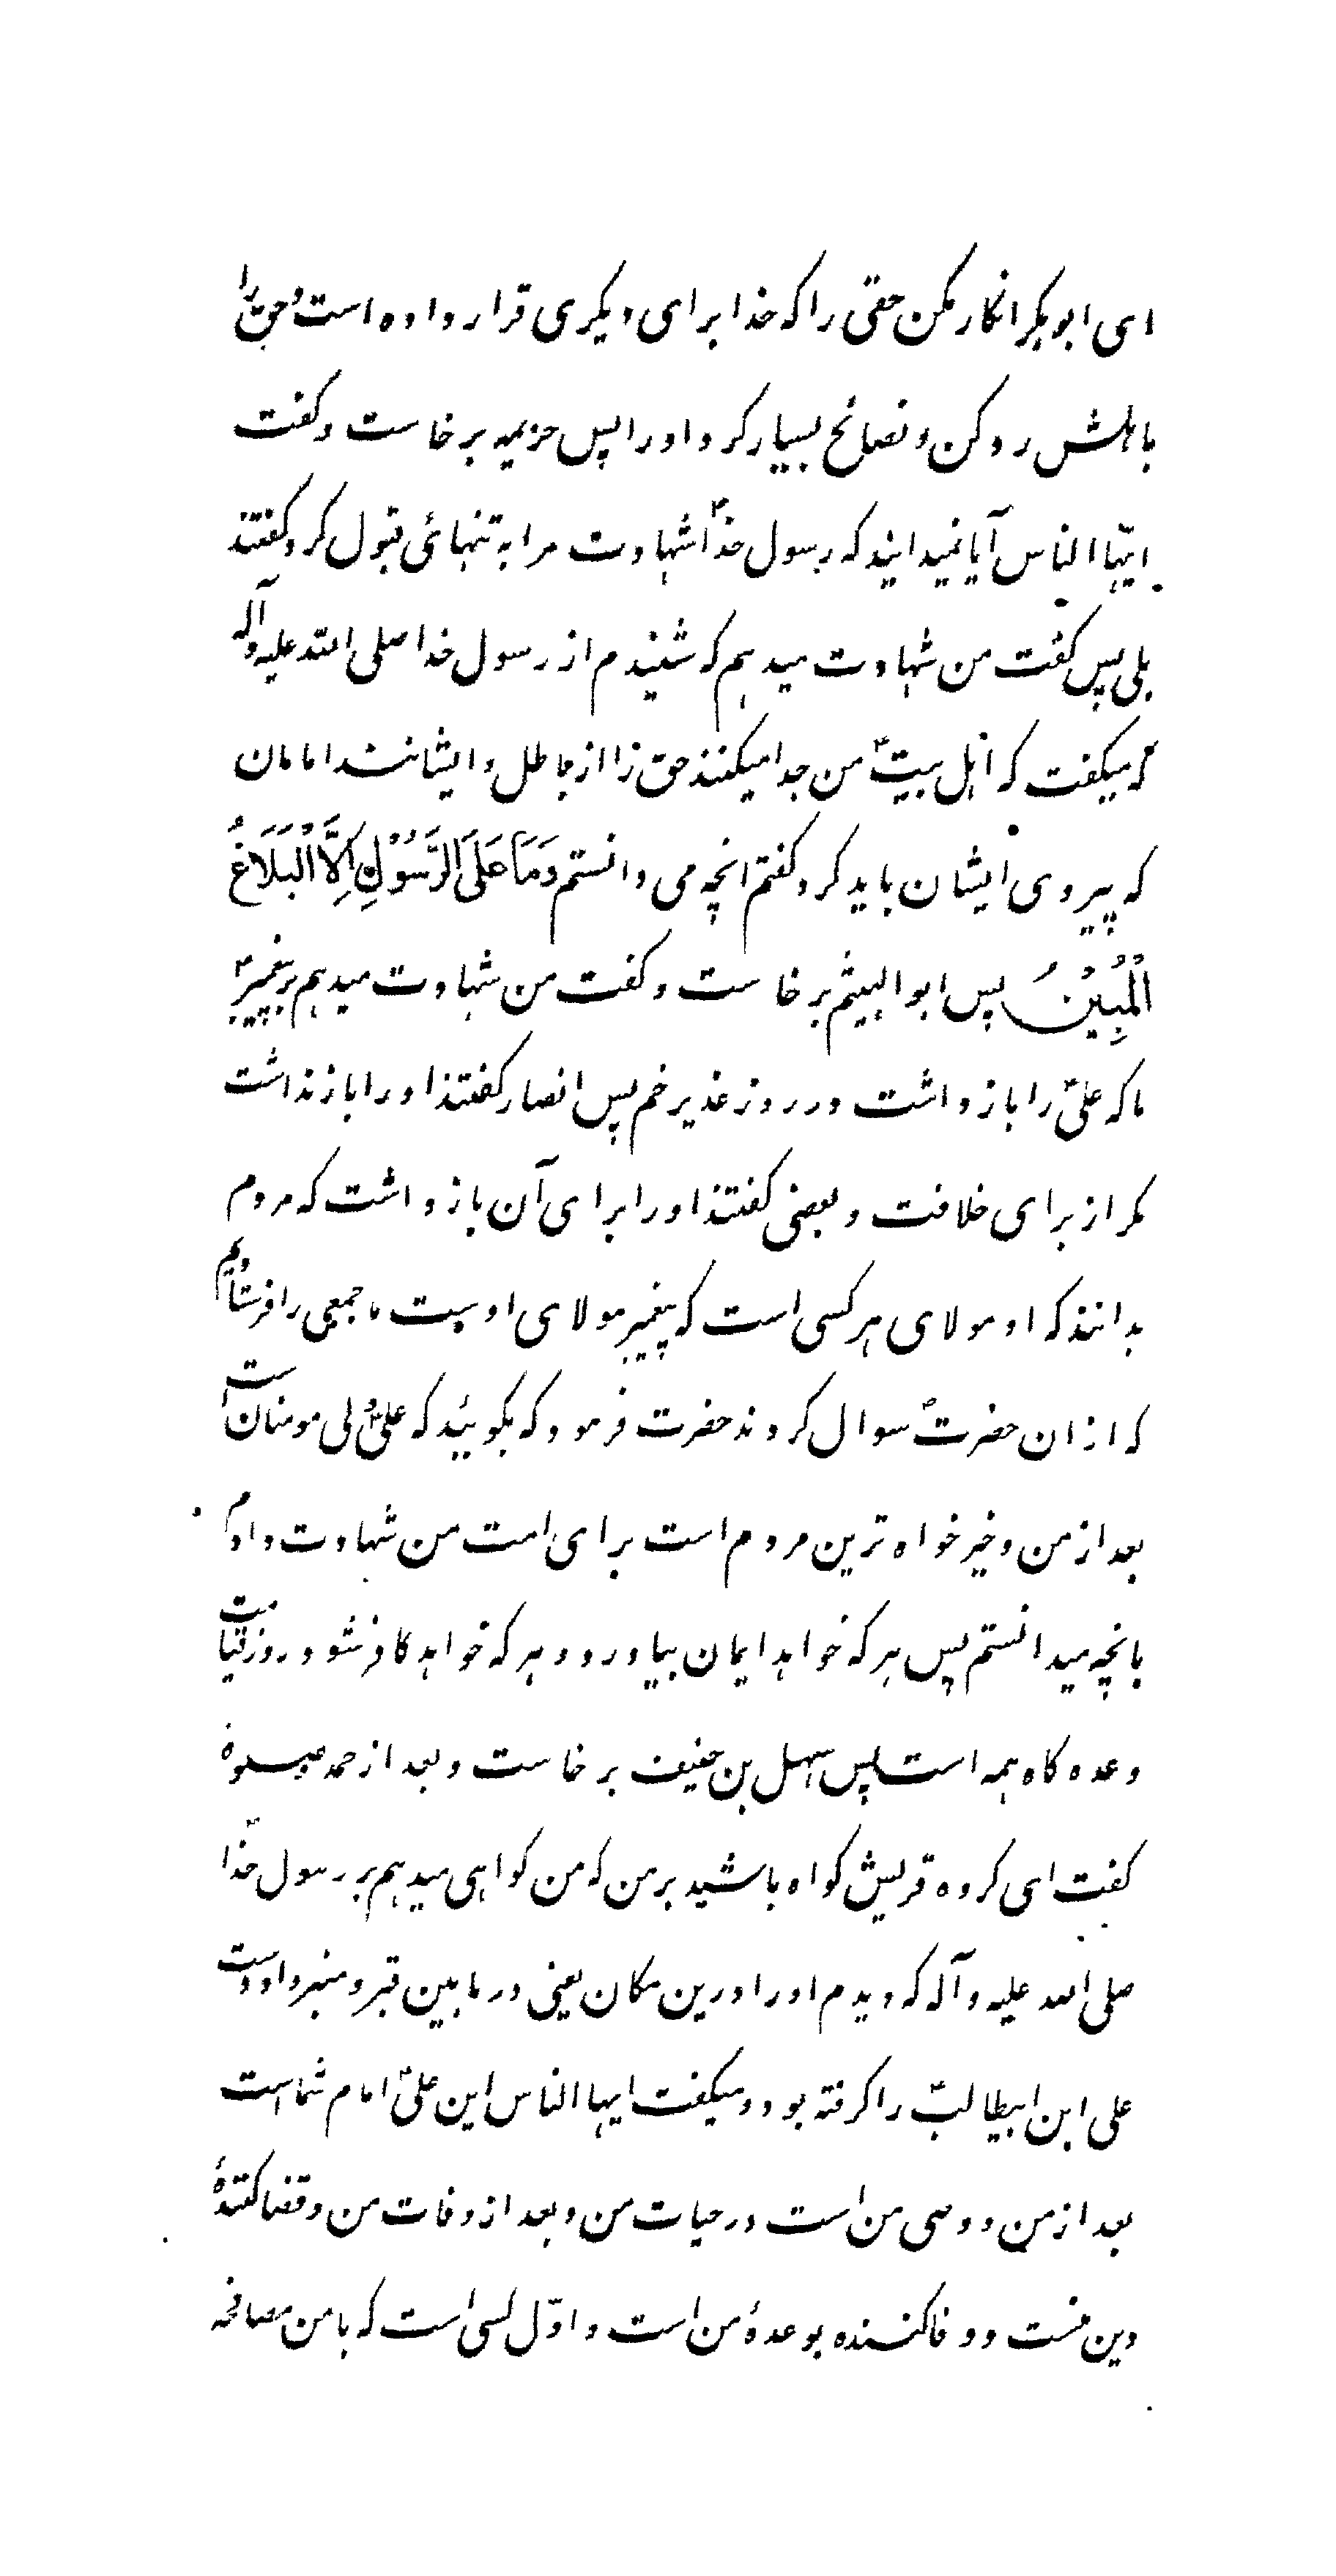 ای ابوبکر انکار مکن حقی را که خدا برای دیگری قرار داده است و حق را
باهلش رد کن و نصائح بسیار کرد او را پس خزیمه برخاست و گفت
ایّها الناس آیا نمیدانید که رسول خداؐ شهادت مرا به تنهائی قبول کرد گفتند
بلی پس گفت من شهادت میدهم که شنیدم از رسول خدا صلی الله علیه وآله
که میگفت که اهل بیتؑ من جدا میکنند حق را از باطل و ایشانند امامان
که پیروی ایشان باید کرد گفتم انچه می دانستم وَمَا عَلَی الرَّسُوْلِ اِلَّا الْبَلَاغُ
الْمُبِیْنُ پس ابوالهیثم برخاست و گفت من شهادت میدهم بر پیغمبرؐ
ما که علیؑ را باز داشت در روز غدیر خم پس انصار گفتند او را باز نداشت
مگر از برای خلافت و بعضی گفتند او را برای آن باز داشت که مردم
بدانند که او مولای هر کسی است که پیغمبر مولای اوست ما جمعی را فرستادیم
که از ان حضرتؐ سوال کردند حضرت فرمود که بگوئید که علیؑ ولی مومنان است
بعد از من و خیر خواه ترین مردم است برای امت من شهادت دادم
بانچه میدانستم پس هر که خواهد ایمان بیاورد و هر که خواهد کافر شود روز قیامت
وعده گاه همه است پس سهل بن حنیف برخاست و بعد از حمد و صلوة
گفت ای گروه قریش گواه باشید بر من که من گواهی میدهم بر رسول خدا
صلی الله علیه و آله که دیدم او را درین مکان یعنی در مابین قبر و منبر و او دست
علی ابن ابیطالبؑ را گرفته بود و میگفت ایها الناس این علیؑ امام شما است
بعد از من و وصی من است در حیات من و بعد از وفات من و قضا کنندهٔ
دین منست و وفا کننده بوعدهٔ من است و اوّل کسی است که با من مصافحه